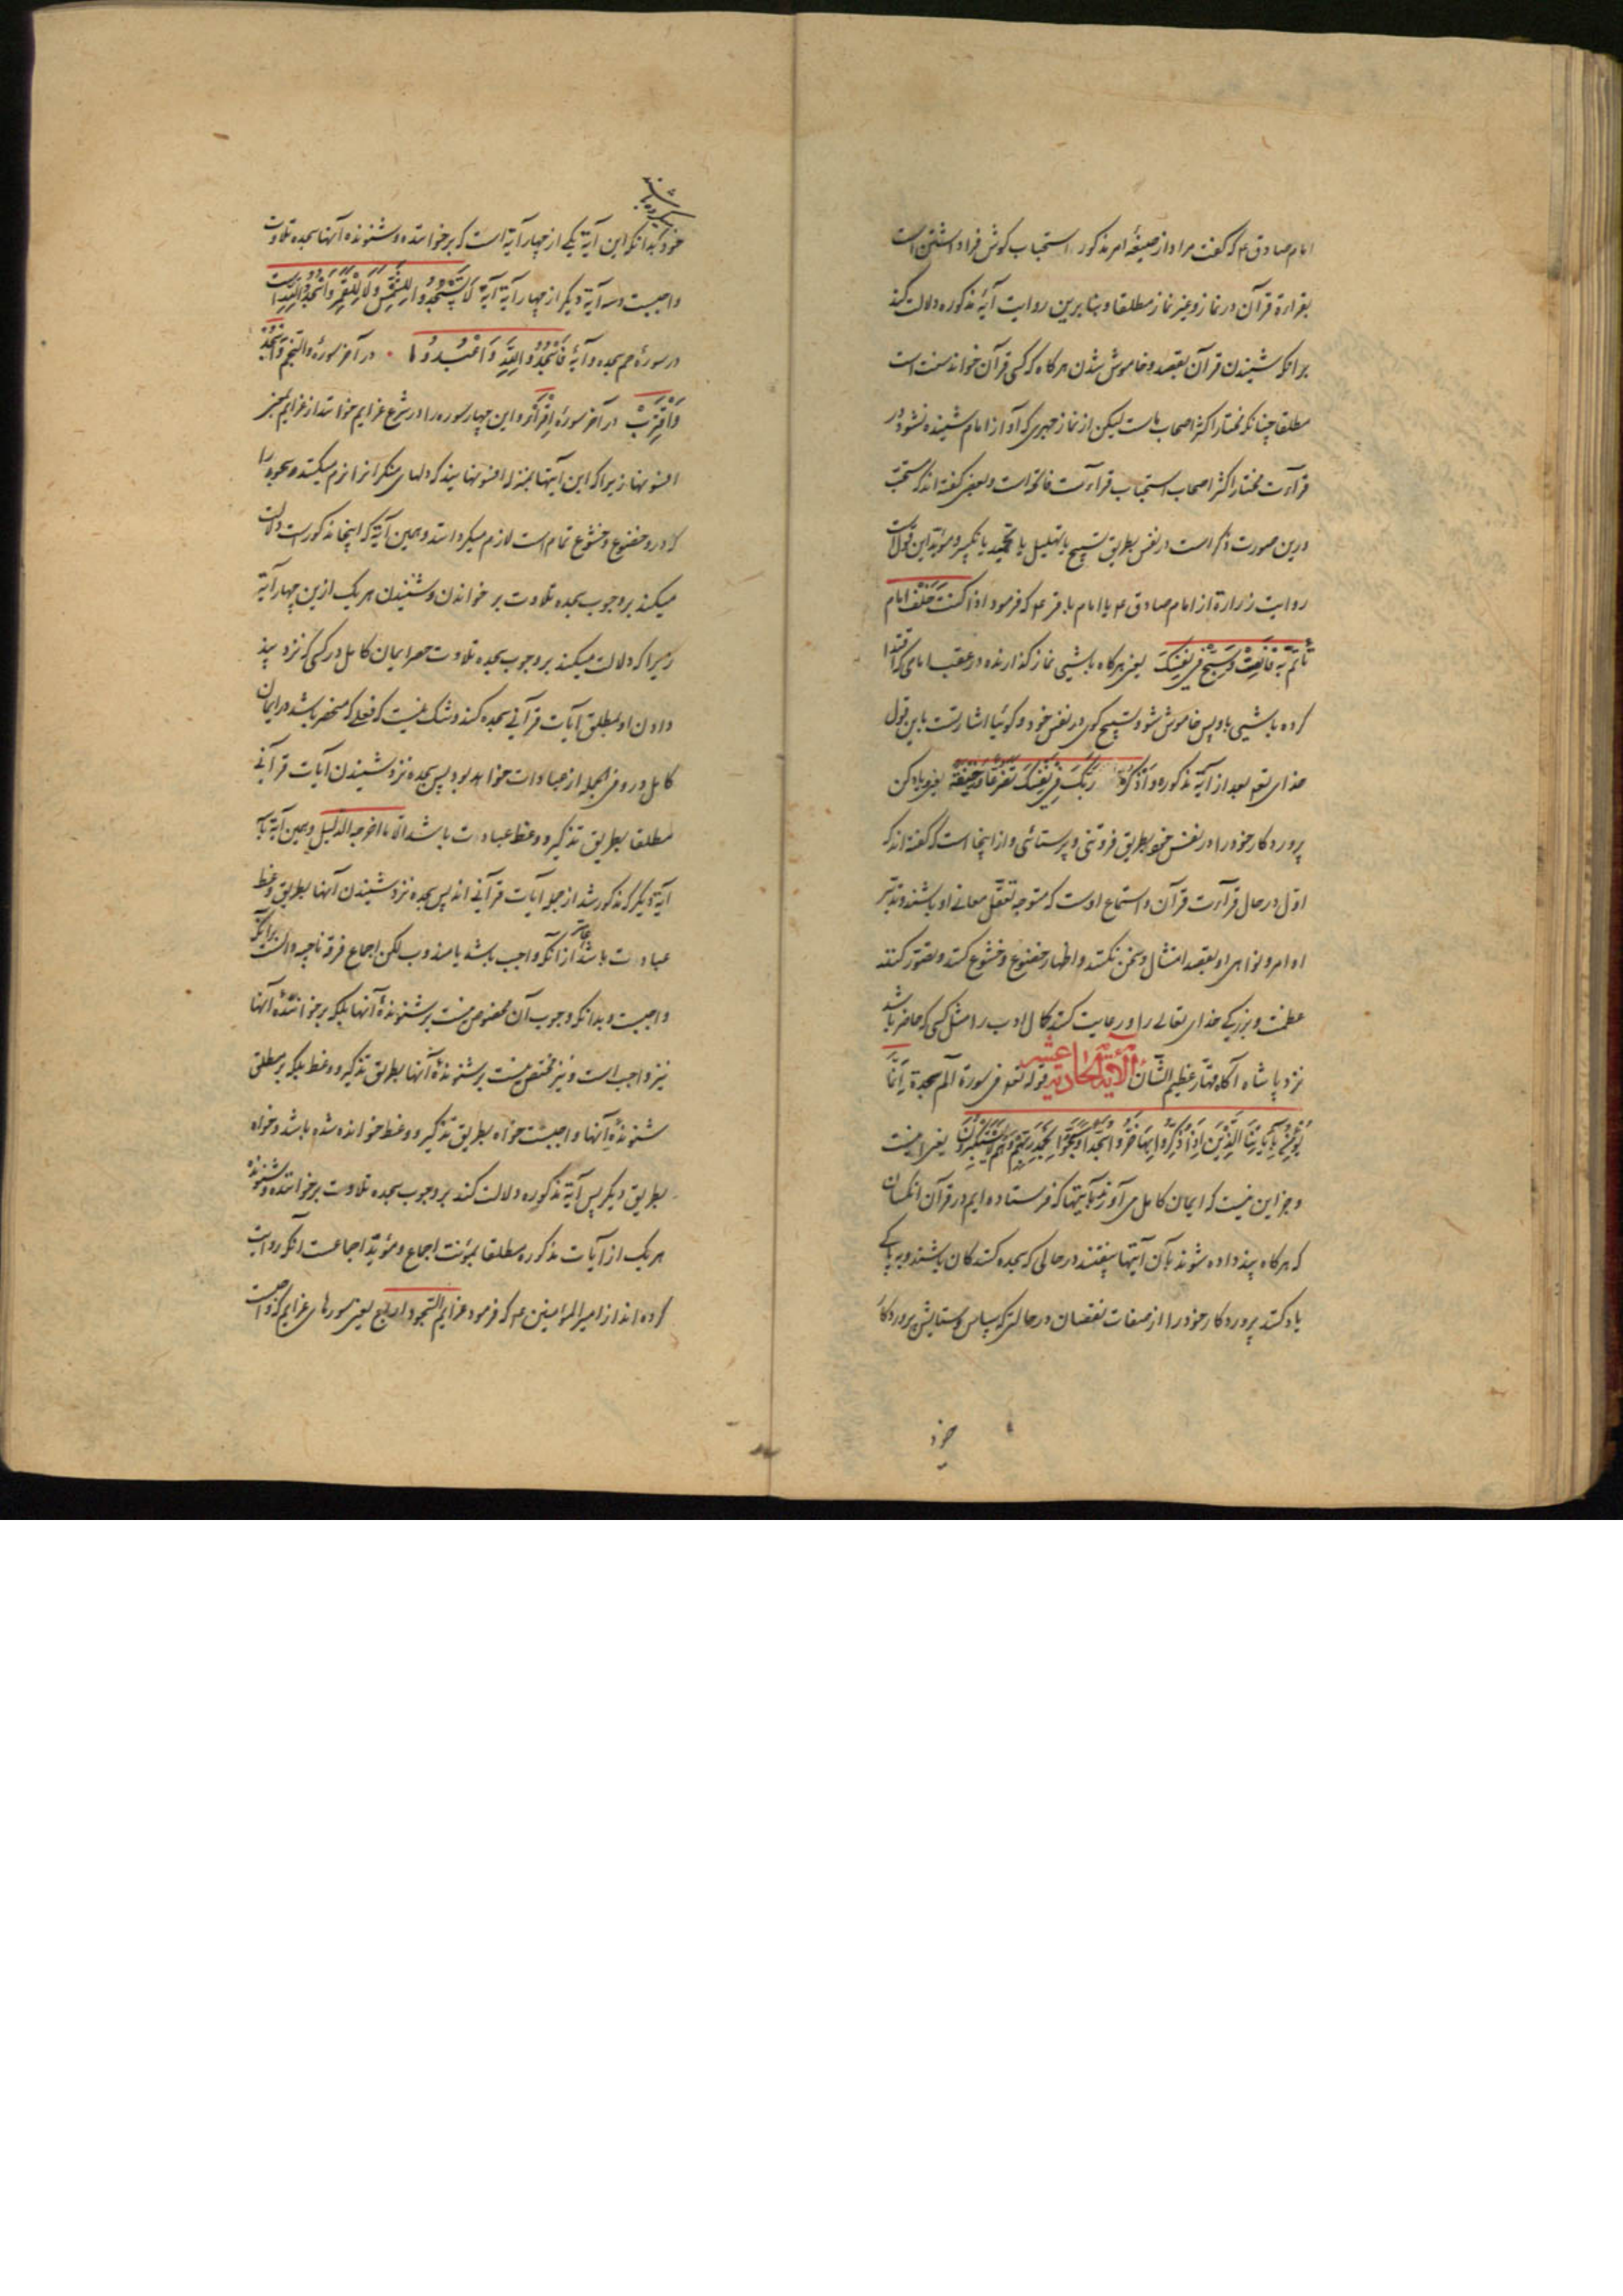 امام صادق ع م که گفت مراد از صیغهٔ امر مذکور استحباب گوش فرا داشتن است
بقراءة قرآن در نماز و غیر نماز مطلقا و بنابرین روایت آیهٔ مذکوره دلالت کند
بر آنکه شنیدن قرآن بقصد و خاموش شدن هر گاه که کسی قرآن خواند سنت است
مطلقا چنانکه مختار اکثر اصحاب ماست لیکن از نماز جهری که آواز امام شنیده نشود در
قرآءت مختار اکثر اصحاب استحباب قرآءت فاتحه است و بعضی گفته‌اند که مستحب
درین صورت ذکر است در نفس بطریق تسبیح یا تهلیل یا تحمید یا تکبیر و مؤید این قولست
روایت زرارة از امام صادق ع م یا امام باقر ع م که فرمود اذا کنت خلف امام
تأتم به فانصت و سبح فی نفسک یعنی هر گاه باشی نماز گذارنده در عقب امامی که اقتدا
کرده باشی باو پس خاموش شو و تسبیح گوی در نفس خود و گوئیا اشارتست باین قول
خدای تعم بعد از آیهٔ مذکوره و اذکر ربک فی نفسک تضرعا و خیفة یعنی و یاد کن
پروردگار خود را در نفس خود بطریق فروتنی و پرستائی و از اینجا است که گفته‌اند که
اول در حال قرآءت قرآن و استماع اوست که متوجه تعقل معانی او باشند و تدبر
اوامر و نواهی او بقصد امتثال و سخن نکنند و اظهار خضوع و خشوع کنند و تصور کنند
عظمت و بزرگی خدای تعالی را و رعایت کنند کمال ادب را مثل کسی که حاضر باشد
نزد پاشاه آگاه قهار عظیم الشان الآیة الحادیة عشر قوله تعم فی سورة الم سجدة إنما
یؤمن بآیاتنا الذین إذا ذکروا بها خروا سجدا و سبحوا بحمد ربهم و هم لا یستکبرون یعنی
و جز این نیست که ایمان کامل می‌آورد بآیتها که فرستاده‌ایم در قرآن آنکسان
که هر گاه پند داده شوند بآن آیتها بیفتند در حالی که سجده کنندگان باشند و به پاکی
یاد کنند پروردگار خود را از صفات نقصان در حالتی که سپاس و ستایش پروردگار
خود
میکرده باشند
خود بدانکه این آیة یکی از چهار آیة است که بر خواننده و شنونده آنها سجده تلاوت
واجبست و سه آیة دیگر از چهار آیة آیة لا تسجدوا للشمس و لا للقمر و اسجدوا لله است
در سورهٔ حم سجده و آیهٔ فاسجدوا لله و اعبدوا در آخر سورهٔ والنجم و اسجد
و اقترب در آخر سورة اقرأ و این چهار سوره را در شرع عزایم خوانند از عزایم بمعنی
افسونها زیرا که این آیتها بمنزله افسونهایند که دلهای منکر انرا نرم میکنند و سجود را
که در و خضوع و خشوع تمام است لازم میکردانند و همین آیة که اینجا مذکور است دلالت
میکند بر وجوب سجده تلاوت بر خواندن و شنیدن هر یک ازین چهار آیة
زیرا که دلالت میکند بر وجوب سجده تلاوت حصر ایمان کامل در کسی که نزد پند
دادن او بمطلق آیات قرآنی سجده کند و شک نیست که فعلی که منحصر باشد در ایمان
کامل در و فی الجمله از عبادات خواهد بود پس سجده نزد شنیدن آیات قرآنی
مطلقا بطریق تذکیر و وعظ عبادت باشد الا ما اخرجه الدلیل و همین آیة با
آیة دیگر که مذکور شد از جمله آیات قرآنی‌اند پس سجده نزد شنیدن آنها بطریق وعظ
عبادت باشد عام از آنکه واجب باشد یا مندوب لکن اجماع فرقه ناجیه دالست بر آنکه
واجبست و بدانکه وجوب آن مخصوص نیست بر شنوندهٔ آنها بلکه بر خوانندهٔ آنها
نیز واجب است و نیز مختص نیست بر شنوندهٔ آنها بطریق تذکیر و وعظ بلکه بر مطلق
شنوندهٔ آنها واجبست خواه بطریق تذکیر و وعظ خوانده شده باشد و خواه
بطریق دیگر پس آیة مذکوره دلالت کند بر وجوب سجده تلاوت بر خواننده و شنونده
هر یک از آیات مذکوره مطلقا بمؤنت اجماع و مؤید اجماعست آنکه روایت
کرده‌اند از امیر المؤمنین ع م که فرمود عزایم السجود اربع یعنی سورهای عزایم که واجبست